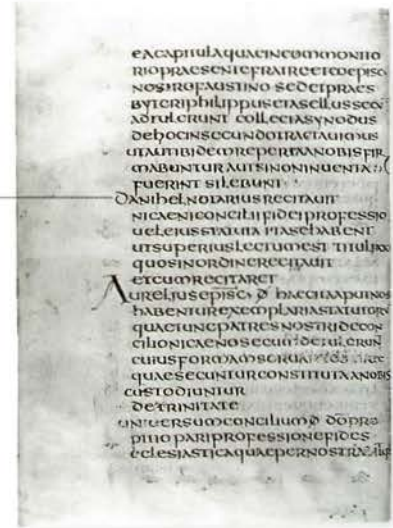 eacapitulaquaeincommonito
riopraesentefratreetcoepisc
nostrofaustino sedetpraes
byteriphilippusetasellussecū
adtulerunt collectasynodus
dehocinsecundotractauimus
utautibidemrepertaanobisfir
mabuntur autsinoninuenta
fuerint silebunt
danihel notarius recitauit
nicaeniconciliifideiprofessio
ueleiusstatuta itasehabent
utsuperiuslectumest titul
quosinordinerecitauit
etcumrecitaret
Aurelius episc d̄ haecitaapudnos
habenturexemplariastatutorū
quaetuncpatresnostridecon
cilionicaenosecum detulerun
cuiusformamserua
quaesecunturconstitutaanobis
custodiuntur
detrinitate
uniuersumconciliumd̄ dōpro
pitio pariprofessionefides
eclesiasticaquaepernostra